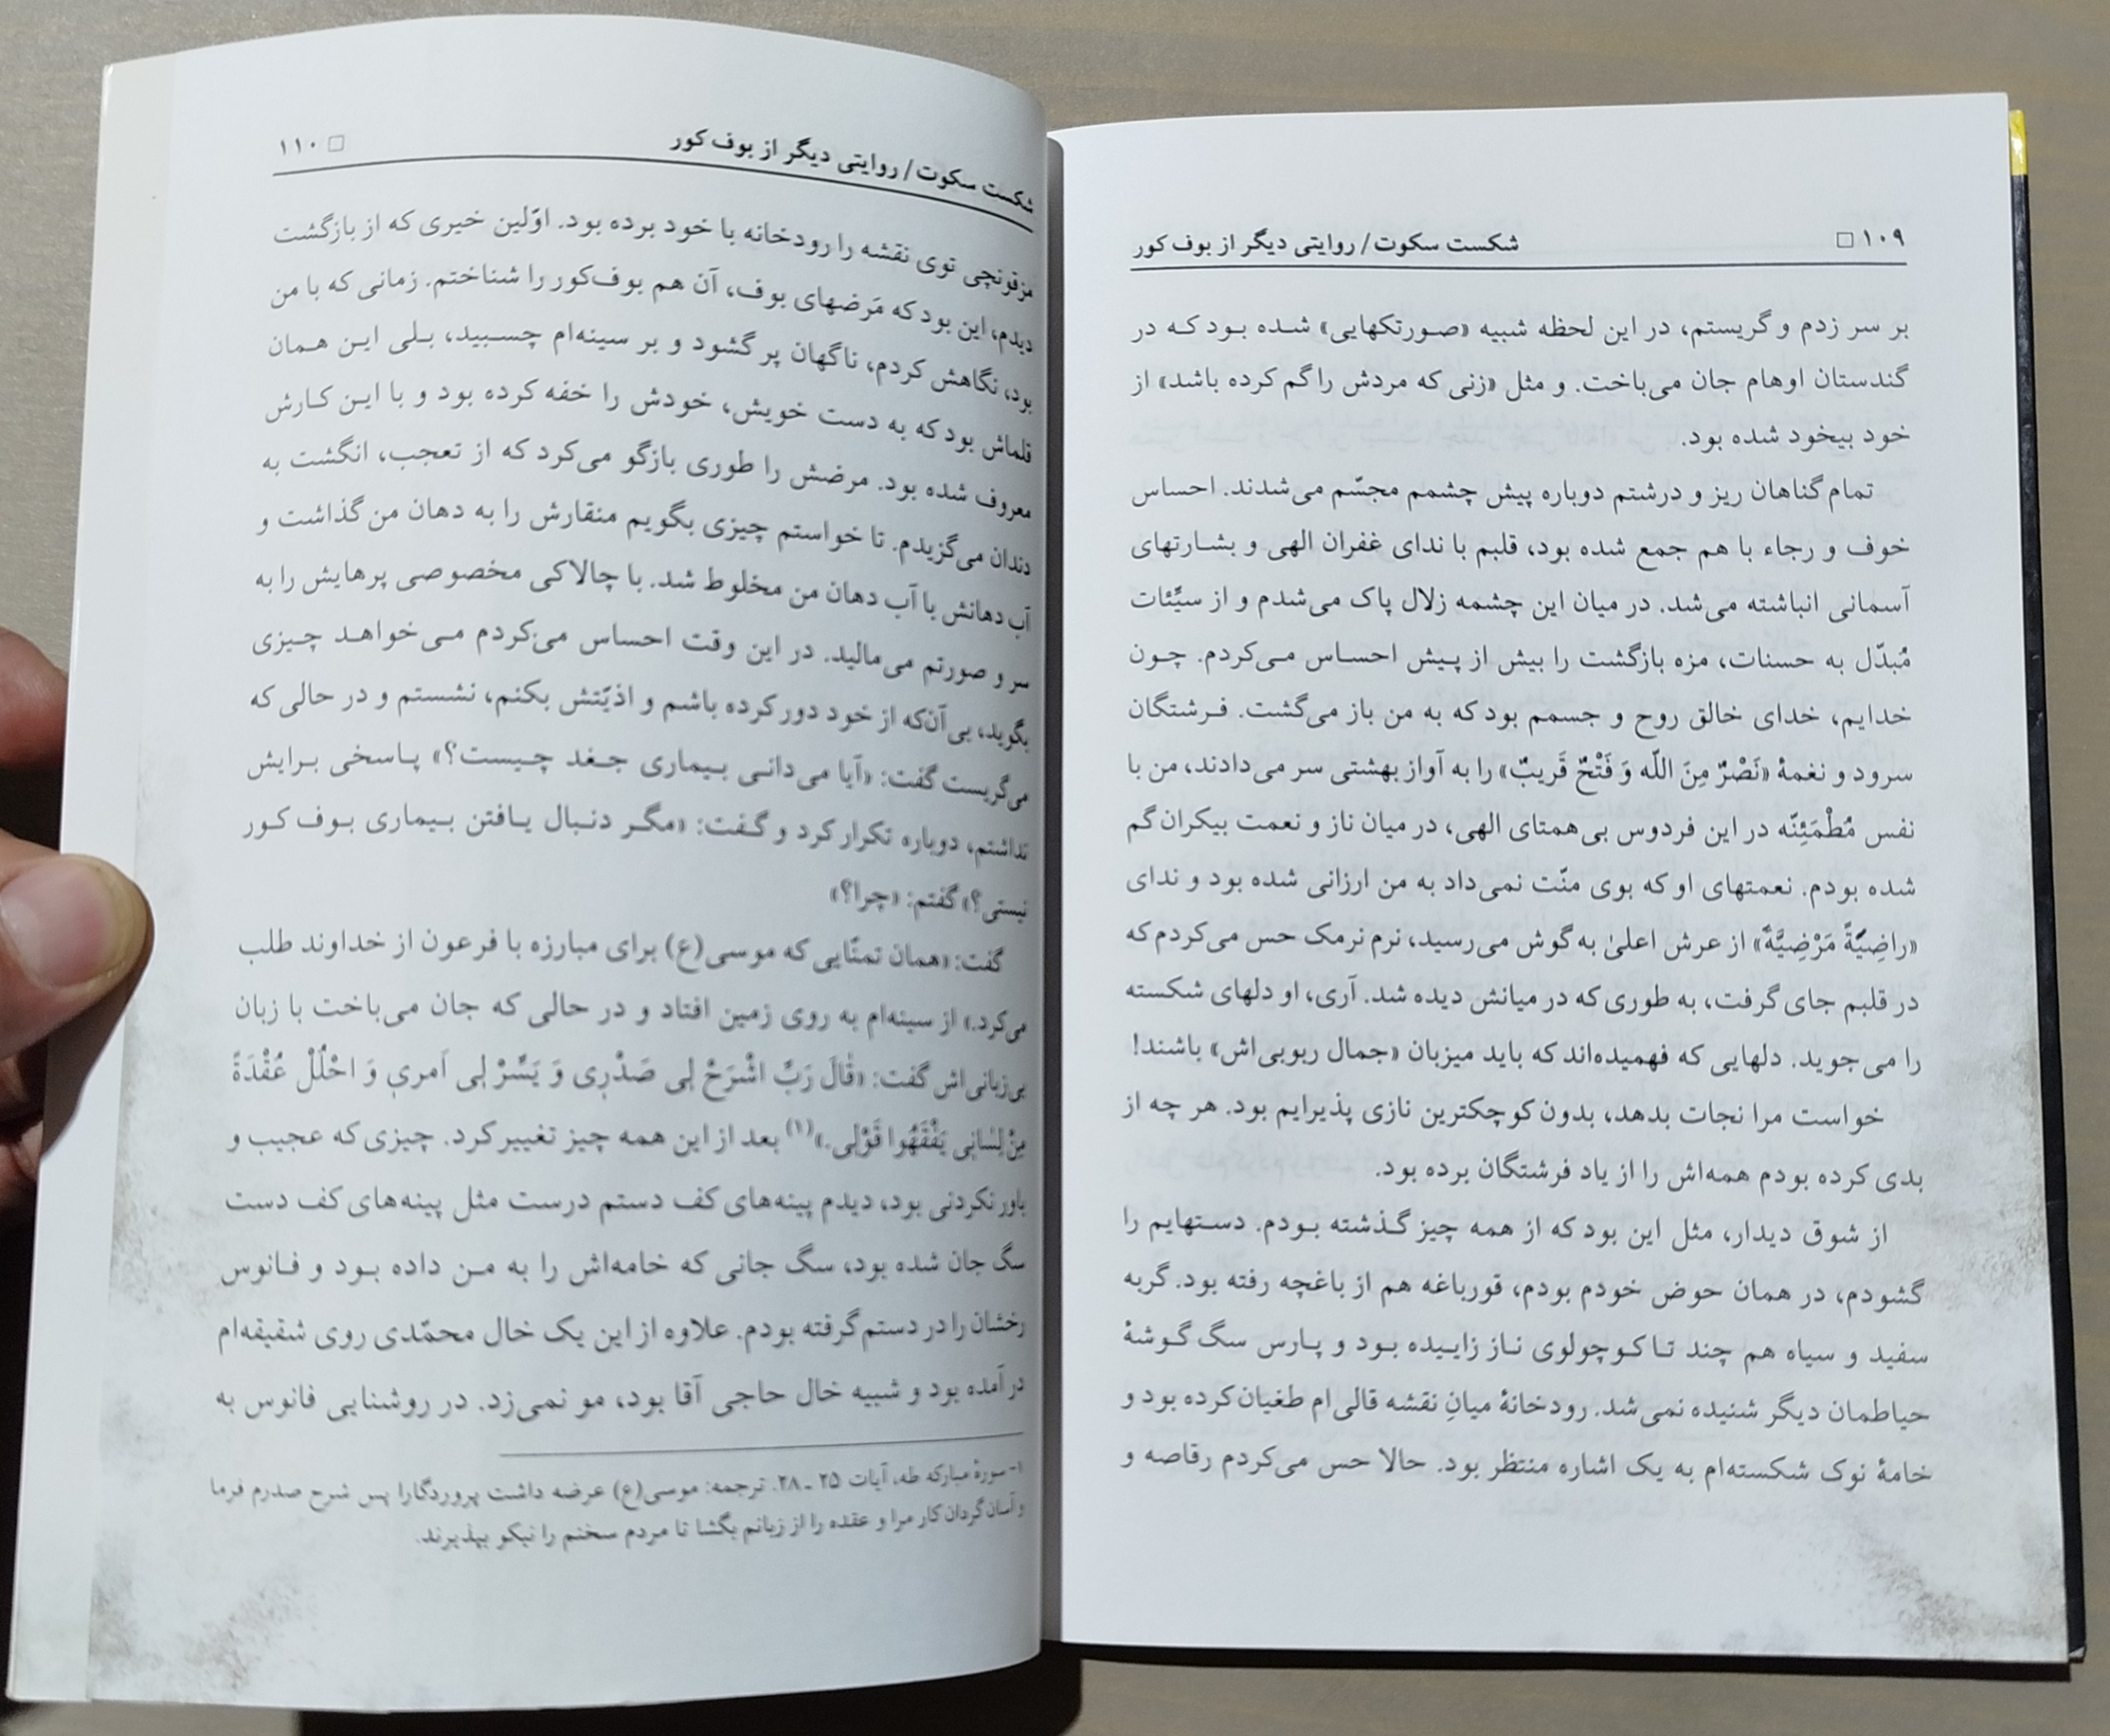 ۱۰۹ □ شکست سکوت / روایتی دیگر از بوف کور
بر سر زدم و گریستم، در این لحظه شبیه «صورتکهایی» شده بود که در
گندستان اوهام جان می‌باخت. و مثل «زنی که مردش را گم کرده باشد» از
خود بیخود شده بود.
تمام گناهان ریز و درشتم دوباره پیش چشمم مجسّم می‌شدند. احساس
خوف و رجاء با هم جمع شده بود، قلبم با ندای غفران الهی و بشارتهای
آسمانی انباشته می‌شد. در میان این چشمه زلال پاک می‌شدم و از سیّئات
مُبدّل به حسنات، مزه بازگشت را بیش از پیش احساس می‌کردم. چون
خدایم، خدای خالق روح و جسمم بود که به من باز می‌گشت. فرشتگان
سرود و نغمهٔ «نَصْرٌ مِنَ اللّه وَ فَتْحٌ قَریبٌ» را به آواز بهشتی سر می‌دادند، من با
نفس مُطْمَئِنّه در این فردوس بی‌همتای الهی، در میان ناز و نعمت بیکران گم
شده بودم. نعمتهای او که بوی منّت نمی‌داد به من ارزانی شده بود و ندای
«راضِیَّةً مَرْضِیَّةً» از عرش اعلیٰ به گوش می‌رسید، نرم نرمک حس می‌کردم که
در قلبم جای گرفت، به طوری که در میانش دیده شد. آری، او دلهای شکسته
را می‌جوید. دلهایی که فهمیده‌اند که باید میزبان «جمال ربوبی‌اش» باشند!
خواست مرا نجات بدهد، بدون کوچکترین نازی پذیرایم بود. هر چه از
بدی کرده بودم همه‌اش را از یاد فرشتگان برده بود.
از شوق دیدار، مثل این بود که از همه چیز گذشته بودم. دستهایم را
گشودم، در همان حوض خودم بودم، قورباغه هم از باغچه رفته بود. گربه
سفید و سیاه هم چند تا کوچولوی ناز زاییده بود و پارس سگ گوشهٔ
حیاطمان دیگر شنیده نمی‌شد. رودخانهٔ میانِ نقشه قالی‌ام طغیان کرده بود و
خامهٔ نوک شکسته‌ام به یک اشاره منتظر بود. حالا حس می‌کردم رقاصه و
شکست سکوت / روایتی دیگر از بوف کور □ ۱۱۰
مزقونچی توی نقشه را رودخانه با خود برده بود. اوّلین خیری که از بازگشت
دیدم، این بود که مَرضهای بوف، آن هم بوف‌کور را شناختم. زمانی که با من
بود، نگاهش کردم، ناگهان پر گشود و بر سینه‌ام چسبید، بلی این همان
قلماش بود که به دست خویش، خودش را خفه کرده بود و با این کارش
معروف شده بود. مرضش را طوری بازگو می‌کرد که از تعجب، انگشت به
دندان می‌گزیدم. تا خواستم چیزی بگویم منقارش را به دهان من گذاشت و
آب دهانش با آب دهان من مخلوط شد. با چالاکی مخصوصی پرهایش را به
سر و صورتم می‌مالید. در این وقت احساس می‌کردم می‌خواهد چیزی
بگوید، بی‌آن‌که از خود دور کرده باشم و اذیّتش بکنم، نشستم و در حالی که
می‌گریست گفت: «آیا می‌دانی بیماری جغد چیست؟» پاسخی برایش
نداشتم، دوباره تکرار کرد و گفت: «مگر دنبال یافتن بیماری بوف کور
نیستی؟» گفتم: «چرا؟»
گفت: «همان تمنّایی که موسی(ع) برای مبارزه با فرعون از خداوند طلب
می‌کرد.» از سینه‌ام به روی زمین افتاد و در حالی که جان می‌باخت با زبان
بی‌زبانی‌اش گفت: «قٰالَ رَبِّ اشْرَحْ لِی صَدْرِی وَ یَسِّرْ لِی اَمری وَ احْلُلْ عُقْدَةً
مِنْ لِسٰانِی یَفْقَهُوا قَوْلِی.»(۱) بعد از این همه چیز تغییر کرد. چیزی که عجیب و
باور نکردنی بود، دیدم پینه‌های کف دستم درست مثل پینه‌های کف دست
سگ جان شده بود، سگ جانی که خامه‌اش را به من داده بود و فانوس
رخشان را در دستم گرفته بودم. علاوه از این یک خال محمّدی روی شقیقه‌ام
در آمده بود و شبیه خال حاجی آقا بود، مو نمی‌زد. در روشنایی فانوس به
۱- سورهٔ مبارکه طه، آیات ۲۵ ـ ۲۸. ترجمه: موسی(ع) عرضه داشت پروردگارا پس شرح صدرم فرما
و آسان گردان کار مرا و عقده را از زبانم بگشا تا مردم سخنم را نیکو بپذیرند.